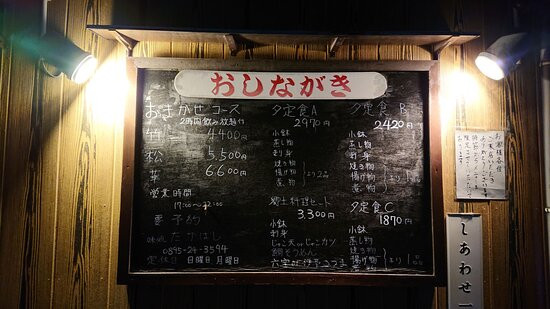 おしながき
おまかせコース
2時間飲み放題付
竹 4400円
松 5,500円
華 6600円
営業時間
17:00〜22:00
要予約
味処 たかはし
0895-24-3594
定休日 日曜日、月曜日
夕定食A
2970円
小鉢
蒸し物
刺身
焼き物
揚げ物
煮物
より2品
郷土料理セット
3,300円
小鉢
刺身
じゃこ天orじゃこカツ
鯛そうめん
六宝or伊予さつま
夕定食 B
2420円
小鉢
蒸し物
刺身
焼き物
揚げ物
煮物
より1品
夕定食C
1870円
小鉢
蒸し物
焼き物
揚げ物
煮物
より1品
お客様各位
しあわせ一